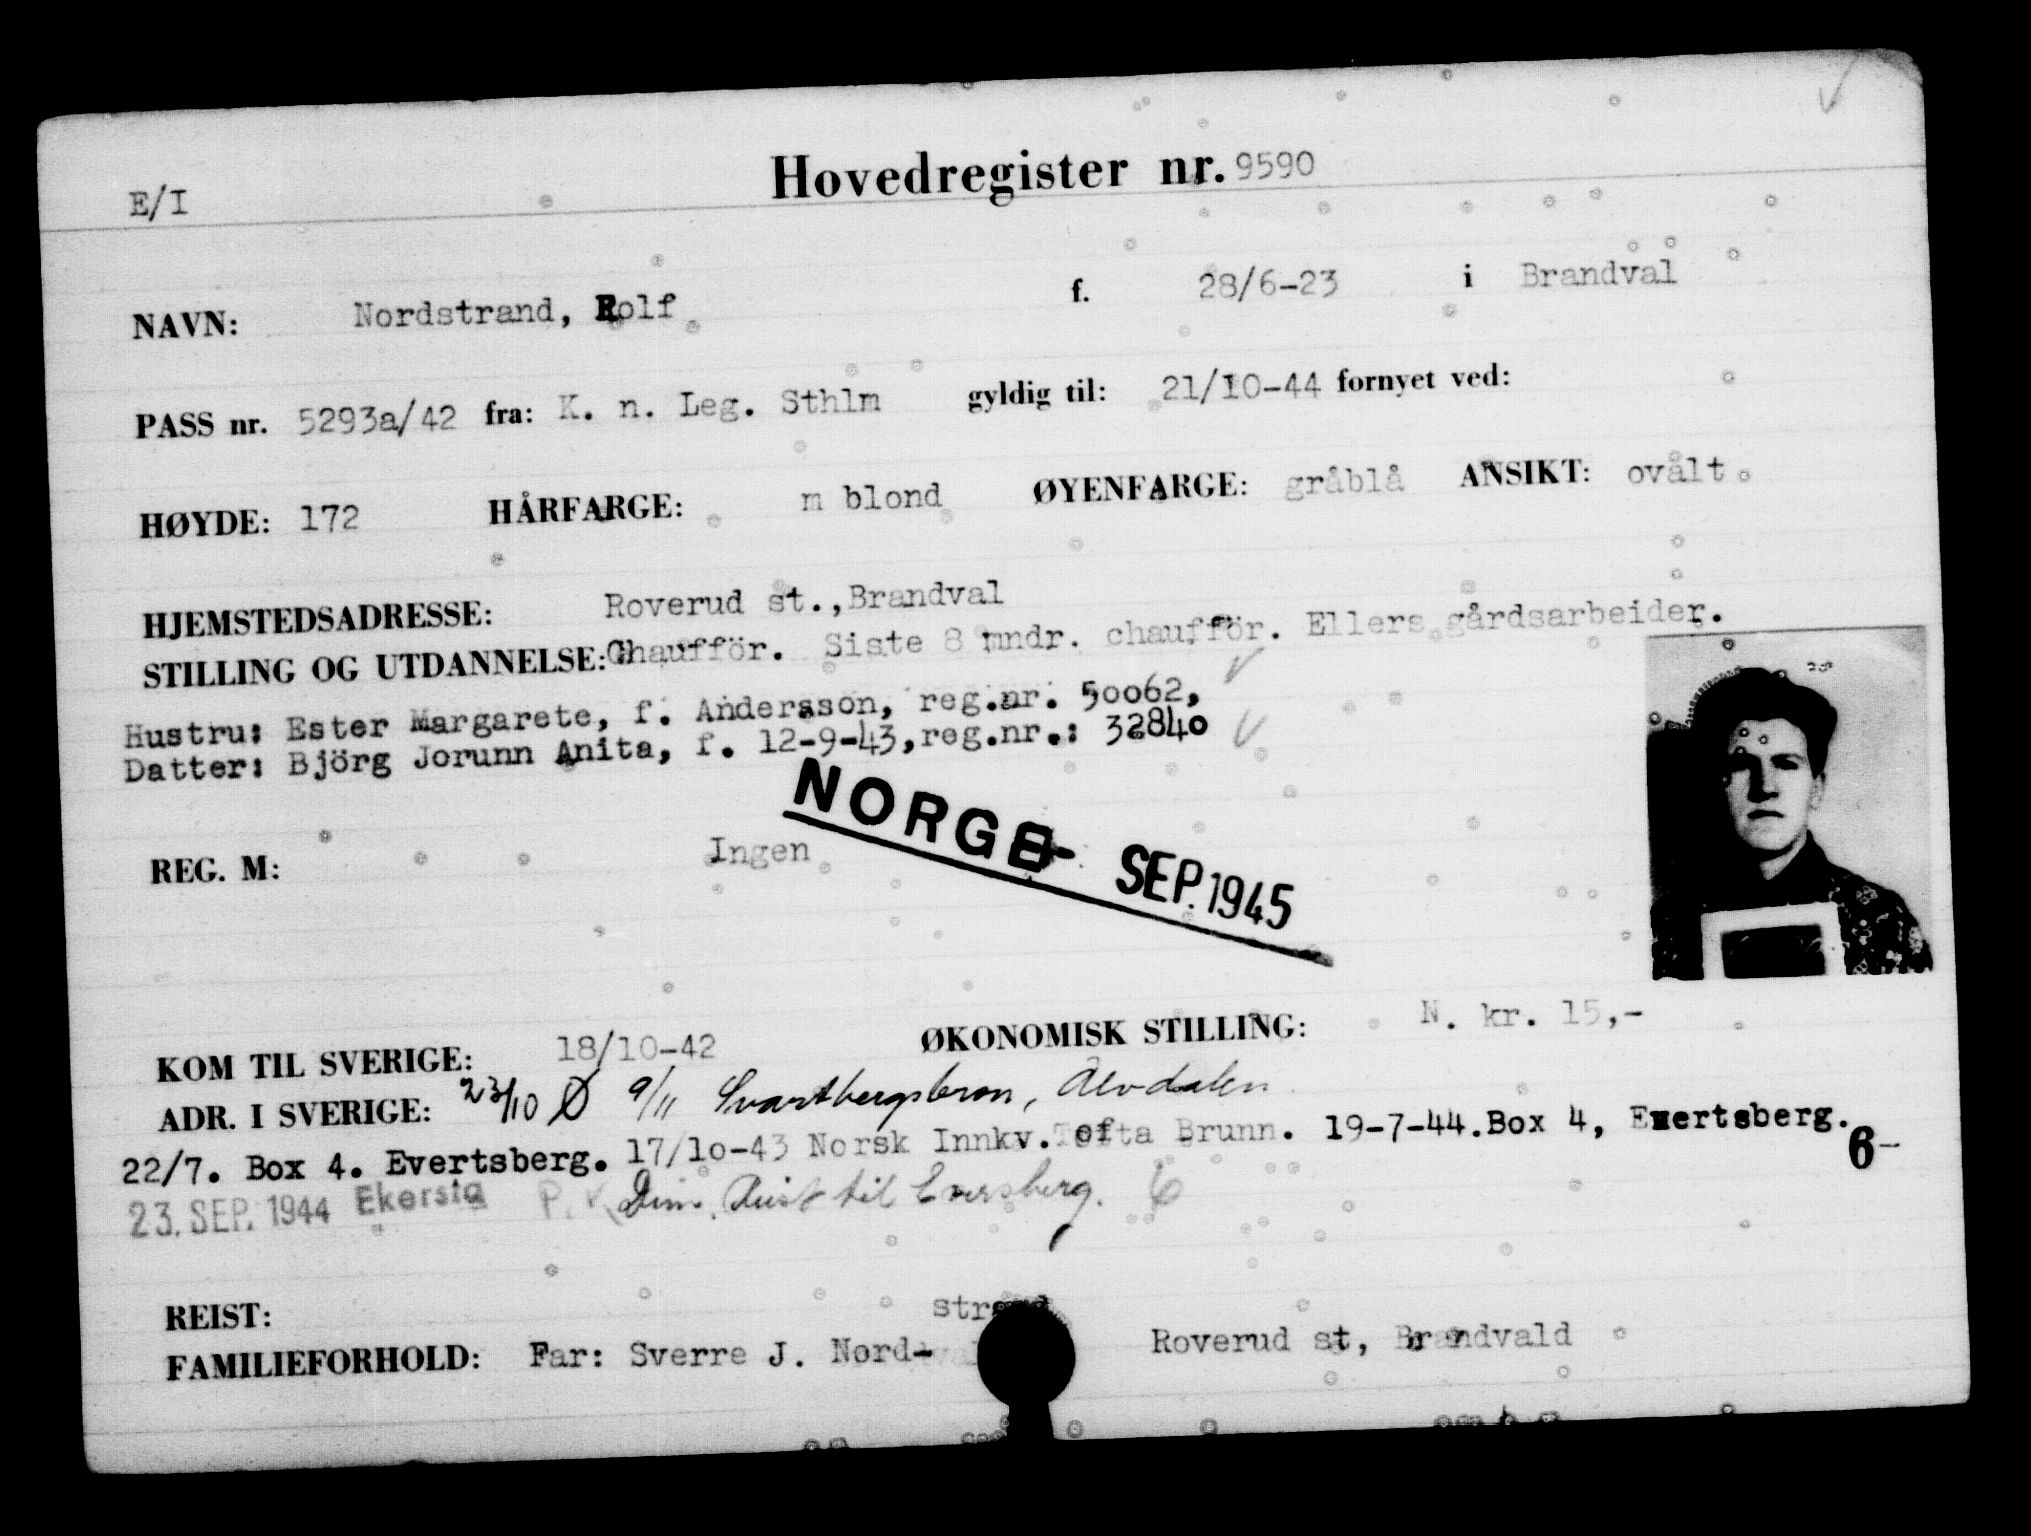 Hovedregister nr. 9590
E/I
NAVN: Nordstrand, Rolf f. 28/6-23 i Brandval
PASS nr. 5293a/42 fra: K. n. Leg. Sthlm gyldig til: 21/10-44 fornyet ved:
HØYDE: 172 HÅRFARGE: m blond ØYENFARGE: gråblå ANSIKT: ovalt
HJEMSTEDSADRESSE: Roverud st., Brandval
STILLING OG UTDANNELSE: Chaufför. Siste 8 mndr. chaufför. Ellers gårdsarbeider.
Hustru: Ester Margarete, f. Andersson, reg.nr. 50062,
Datter: Björg Jorunn Anita, f. 12-9-43, reg.nr.: 32840
NORGE - SEP. 1945
REG. M: Ingen
KOM TIL SVERIGE: 18/10-42 ØKONOMISK STILLING: N. kr. 15,-
ADR. I SVERIGE: 23/10 Ø 9/11 Svartbergsbron, Älvdalen
22/7. Box 4. Evertsberg. 17/10-43 Norsk Innkv. Tofta Brunn. 19-7-44. Box 4, Evertsberg. 6-
23. SEP. 1944 Ekersig P.V. Dim. Reist til Eversberg. 6
REIST:
strand
FAMILIEFORHOLD: Far: Sverre J. Nord- Roverud st, Brandvald